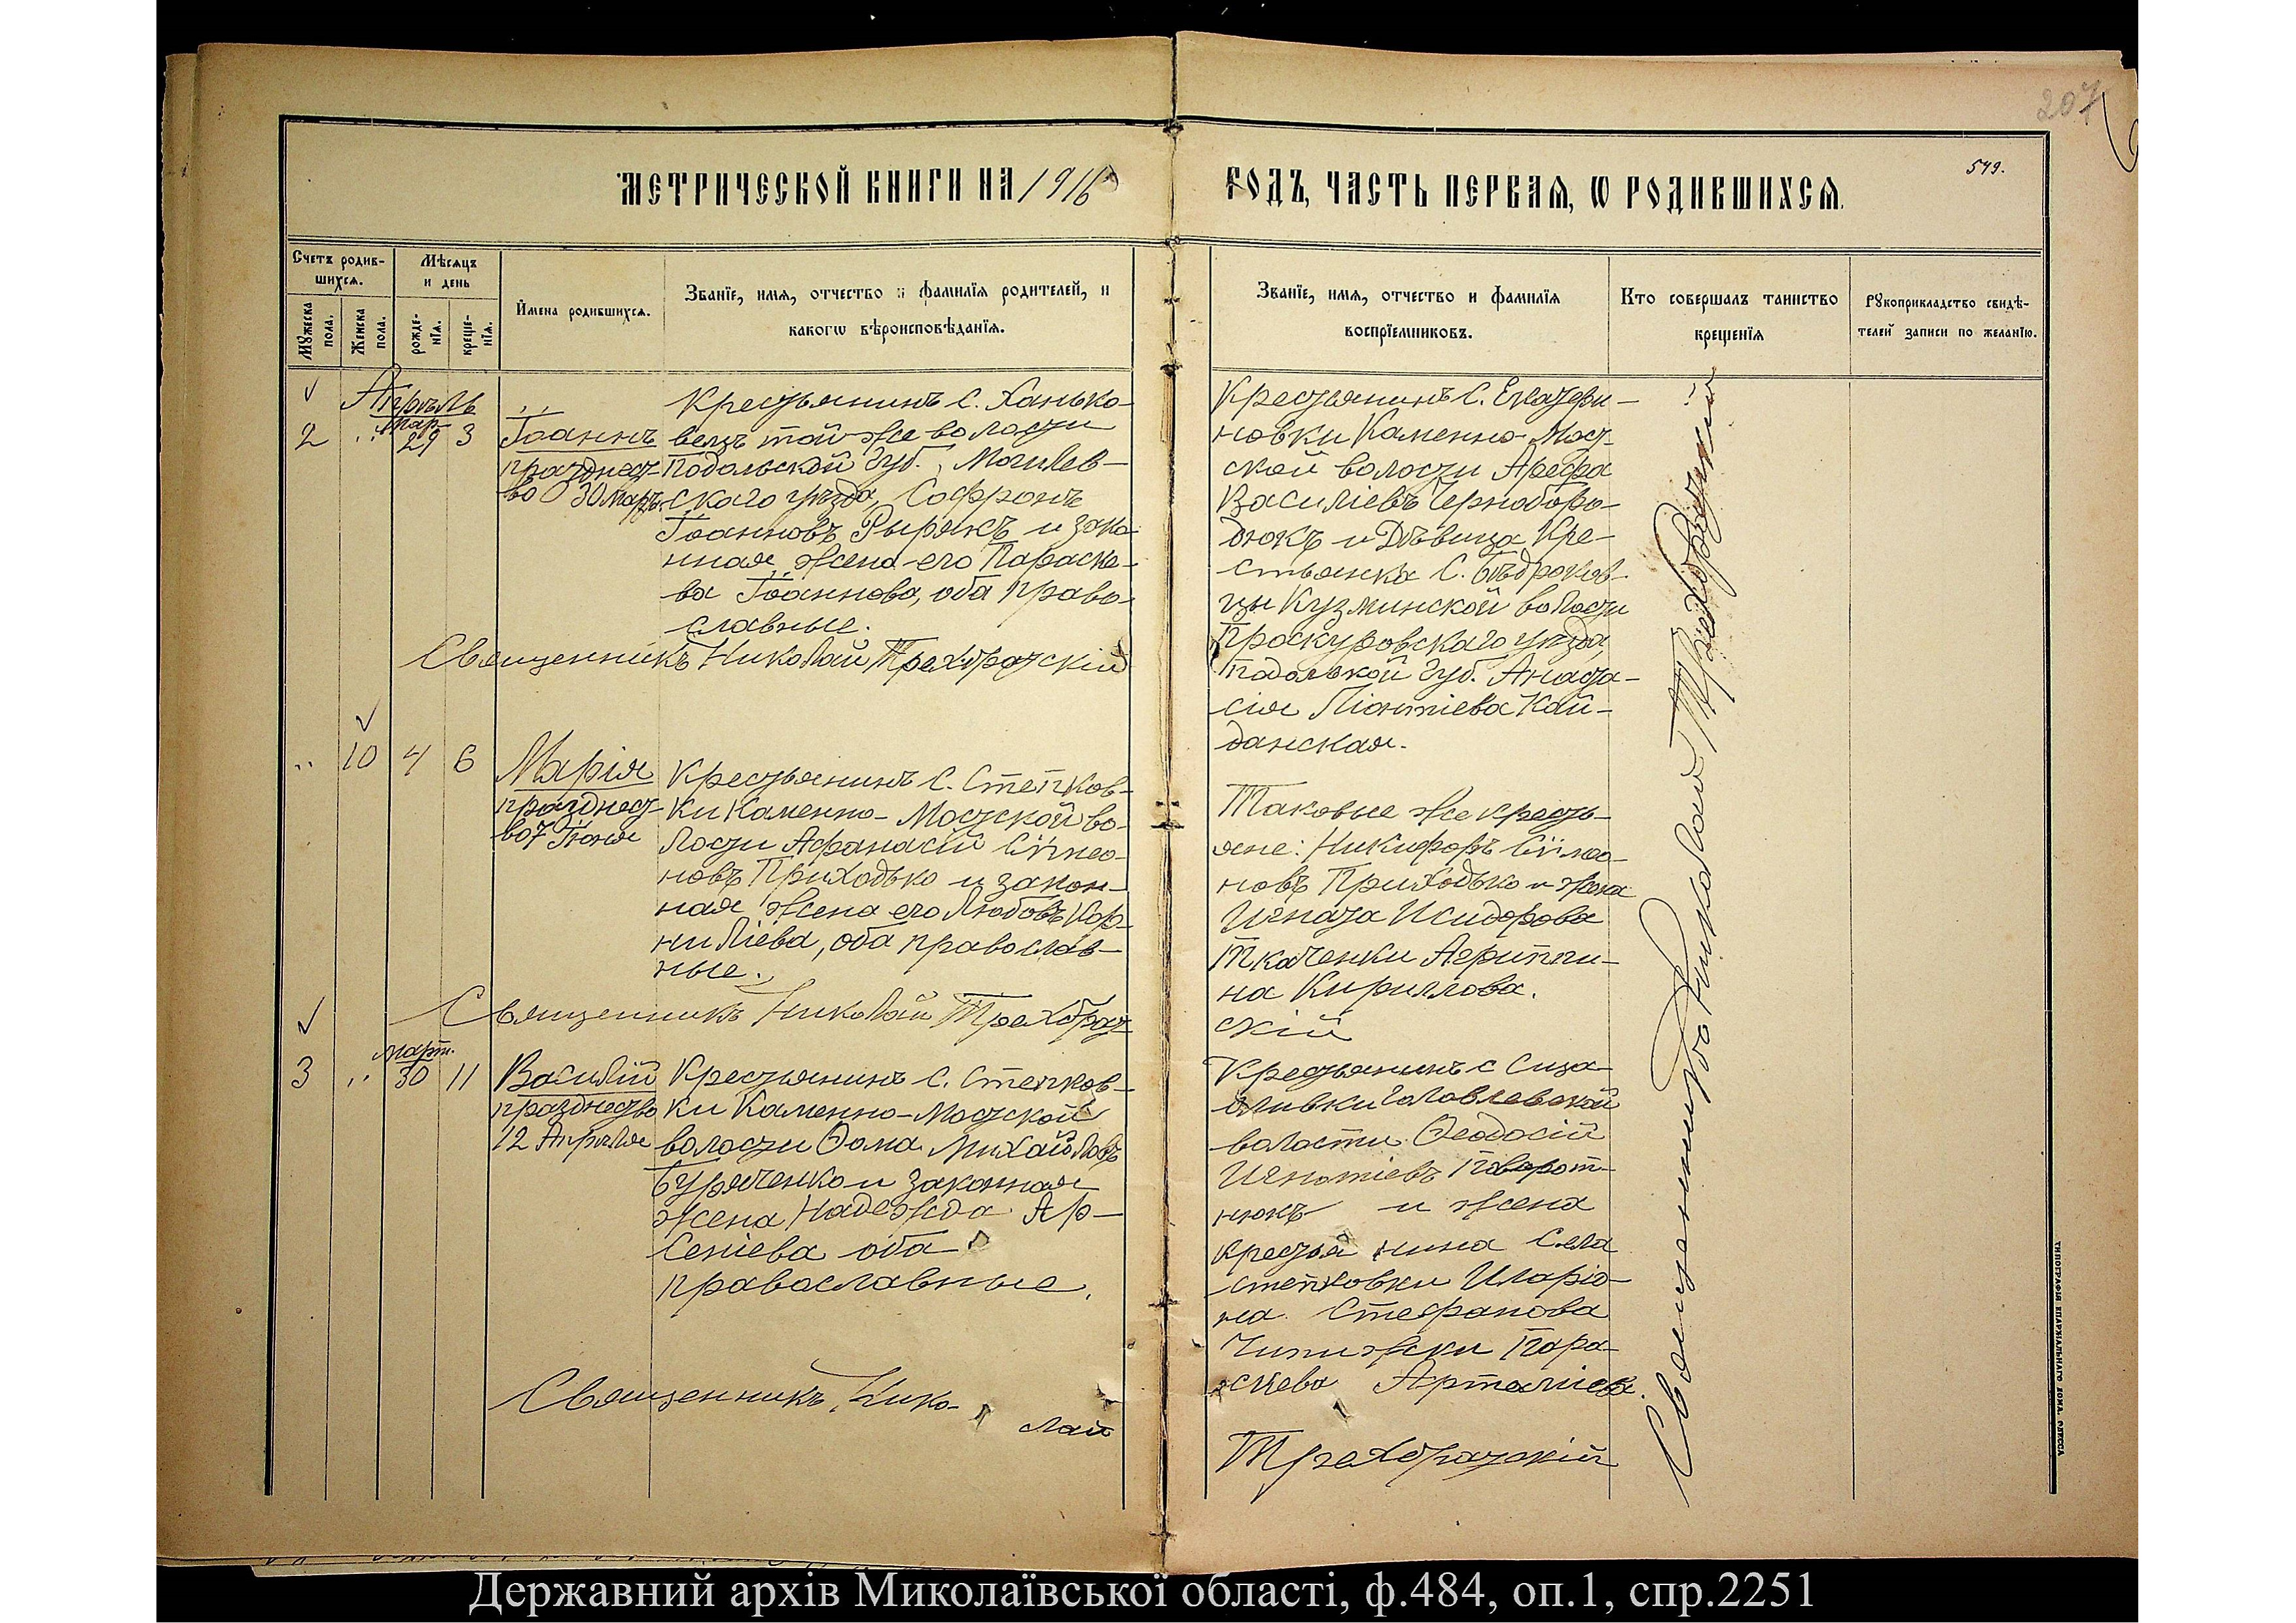 207
549.
МЕТРИЧЕСКОЙ КНИГИ НА 1916
ГОДЪ, ЧАСТЬ ПЕРВАЯ, Ѡ РОДИВШИХСЯ.
Счетъ родив-
шихся.
Мѣсяцъ
и день
Мужеска
пола.
Женска
пола.
рожде-
нїя.
креще-
нїя.
Имена родившихся.
Званїе, имя, отчество и фамилїя родителей, и
какогѡ вѣроисповѣданїя.
Званїе, имя, отчество и фамилїя
воспрїемниковъ.
Кто совершалъ таинство
крещенїя
Рукоприкладство свидѣ-
телей записи по желанїю.
Апрѣль
2 " мар. 29 3
Іоаннъ
празднест-
во 30 март.
Крестьянинъ С. Ханько-
вецъ той же волости
Подольской губ., Могилев-
скаго уѣзда, Софронъ
Іоанновъ и зако-
нная жена его Параске-
ва Іоаннова, оба право-
славные.
Священникъ Николай Трехбратскій
Крестьянинъ С. Екатери-
новки Каменно-Мост-
ской волости Арефа
Василіевъ Чернобро-
дюкъ и Дѣвица Кре-
стьянка С.
Кузминской волости
Проскуровскаго уѣзда,
Подольской губ. Анаста-
сія Кай-
данская.
" 10 4 6
Марія
празднест-
во 7 Іюня
Крестьянинъ С. Степков-
ки Каменно-Мостской во-
лости Афанасій Сѵмео-
новъ Приходько и закон-
ная жена его Любовь Кор-
нилiева, оба православ-
ные.
Священникъ Николай Трехбрат
скій
Таковые же кресть-
яне: Никифоръ Сѵмео-
новъ Приходько и жена
Игната Исидорова
Ткаченки Агриппи-
на Кириллова.
3 " март. 30 11
Василій
празднество
12 Апрѣля
Крестьянинъ С. Степков-
ки Каменно-Мостской
волости Ѳома Михайловъ
Буряченко и законная
жена Надежда Ар-
сеніева оба
православные.
Крестьянинъ с
Головлевской
волости Ѳеодосій
Игнатіевъ Поворот-
нюкъ и жена
крестьянина Села
Степковки Иларіо-
на Стефанова
Чипижски Пара-
скева
Священникъ Нико-
лай
Трехбратскій
Священникъ Николай Трехбратскій
ТИПОГРАФІЯ ЕПАРХІАЛЬНАГО ДОМА. ОДЕССА
Державний архів Миколаївської області, ф.484, оп.1, спр.2251